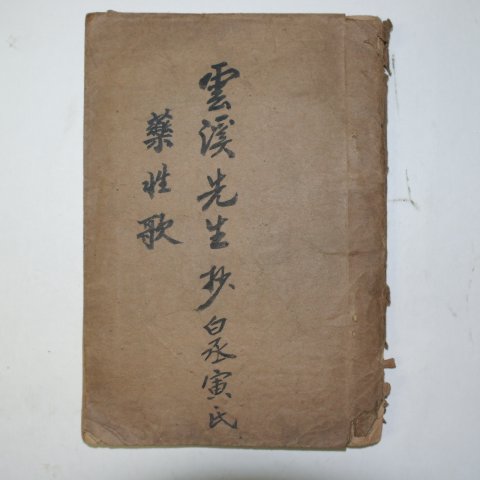 雲溪先生抄白丞寅氏
藥性歌